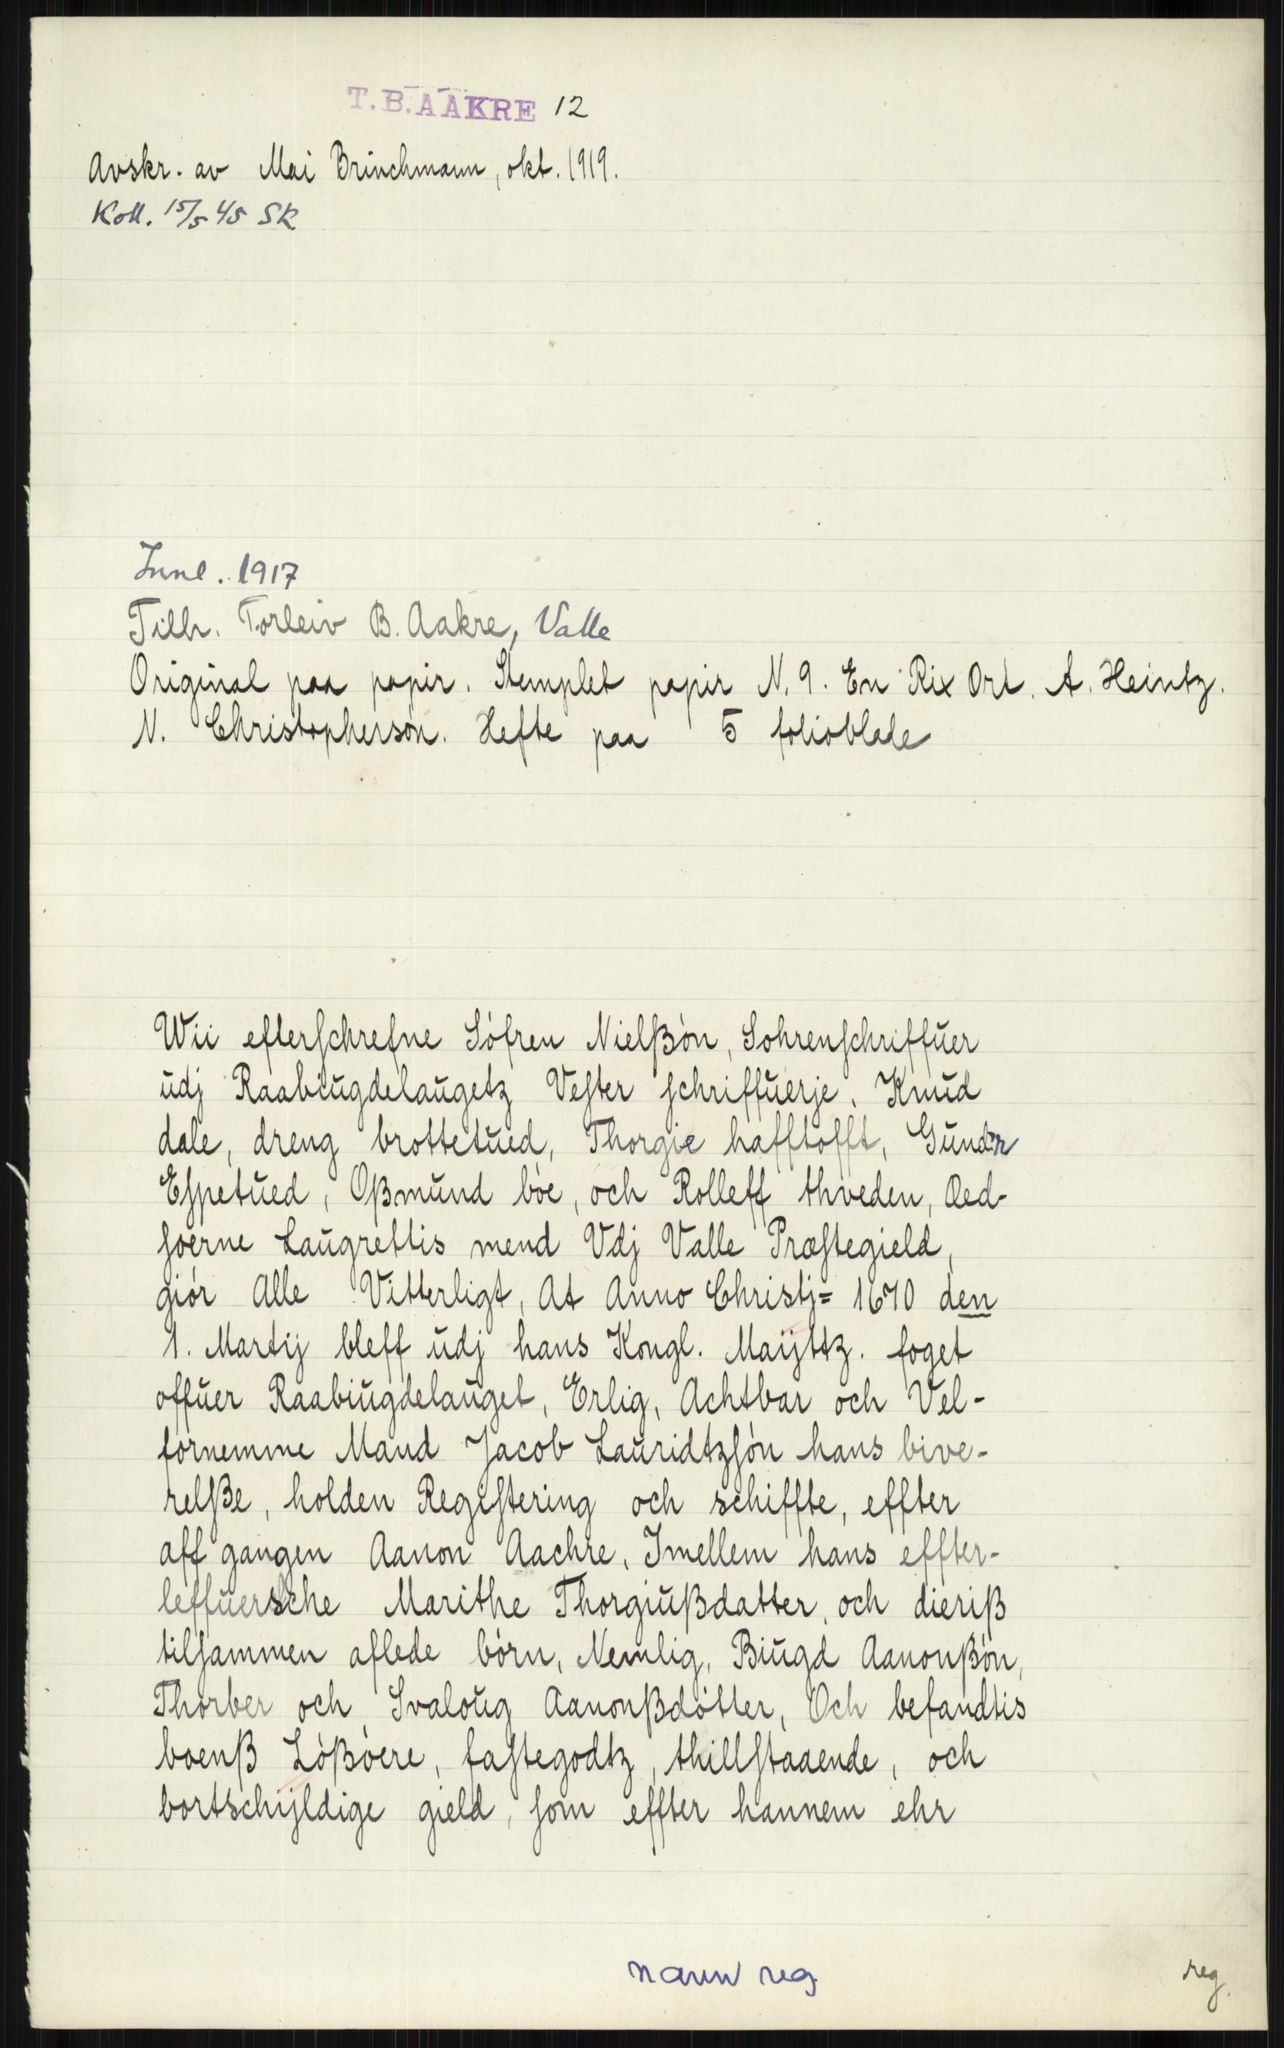 T.B.AAKRE 12
Avskr. av Mai Brinchmann, okt. 1919.
Koll. 15/5 45 SK
Innl. 1917
Tilh. Torleiv B. Aakre, Valle
Original paa papir. Stemplet papir N. 9. En Rix Ort. A. Heintz.
N. Christopherson. Hefte paa 5 folioblade
Wii efterschrefne Söfren Nielßön, Sohrenschriffuer
udj Raabiugdelaugetz Vester schriffuerje, Knud
dale, dreng brottetued, Thorgie hafftofft, Gunder
Espetued, Oßmund böe, och Rolleff thveden, Aed-
soerne Laugrettis mend Vdj Valle Præstegield,
giör Alle Vitterligt, At Anno Christj= 1670 den
1. Martij bleff udj hans Kongl. Maijttz. foget
offuer Raabiugdelauget, Erlig, Achtbar och Vel-
fornemme Mand Jacob Lauridtzsön hans bive-
relße, holden Registering och schiffte, effter
aff gangen Aanon Aachre, Imellem hans effter-
leffuersche Marithe Thorgiußdatter, och dieriß
tilsammen aflede börn, Nemlig, Biugd Aanonßön,
Thorber och Svaloug Aanonßdötter, Och befandtis
boenß Lößöere, fastegodtz, thillstaaende, och
bortschijldige gield, som effter hannem ehr
navn reg.
reg.